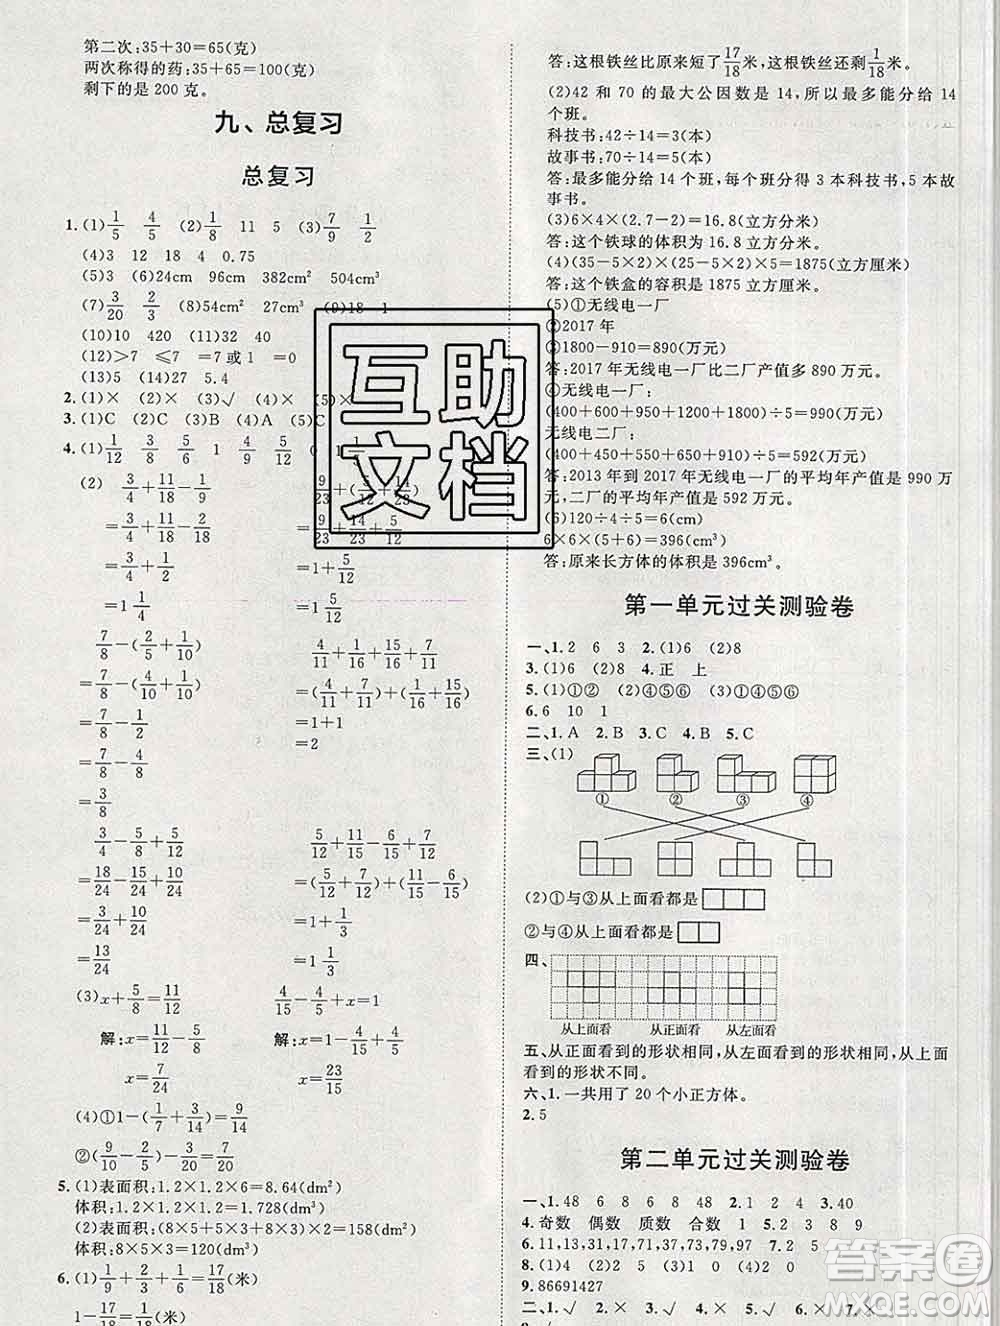 第二次:35+30=65(克)
两次称得的药:35+65=100(克)
剩下的是 200 克。
九、总复习
总复习
1.(1)1/5 4/5 (2)1/8 11 5 (3)7/9 1/9
(4)3 12 18 4 0.75
(5)3 (6)24cm 96cm 382cm² 504cm²
(7)3/20 2/3 (8)54cm² 27cm³ (9)18 1
(10)10 420 (11)32 40
(12)>7 ≤7 =7或1 =0
(13)5 (14)27 5.4
2.(1)× (2)× (3)√ (4)× (5)×
3.(1)C (2)C (3)A (4)A (5)C
4.(1)1/12 3/8 5/6 1 4/9
(2) 3/4+11/18-1/9
=3/4+11/18-2/18
=3/4+1/2
=1 1/4
9/23+(5/12+14/23)
=9/23+14/23+5/12
=1+5/12
=1 5/12
7/8-(2/5+1/10)
=7/8-(4/10+1/10)
=7/8-1/2
=7/8-4/8
=3/8
4/11+1/16+15/16+7/11
=(4/11+7/11)+(1/16+15/16)
=1+1
=2
3/4-5/8+5/12
=18/24-15/24+10/24
=3/24+10/24
=13/24
5/12+11/15-6/15+7/12
=(5/12+7/12)+(11/15-6/15)
=1+1/3
=1 1/3
(3)x+5/8=11/12
解:x=11/12-5/8
x=7/24
4/15-4/5+x=1
解:x=1-4/15+4/5
x=23/15
(4)①1-(1/7+3/14)=9/14
②(9/10-3/20)-3/20=
5.(1)表面积:1.2×1.2×6=8.64(dm²)
体积:1.2×1.2×1.2=1.728(dm³)
(2)表面积:(8×5+5×3+8×3)×2=158(dm²)
体积:8×5×3=120(dm³)
6.(1)=17/18(米)
1-17/18=1/18(米)
答:这根铁丝比原来短了17/18米,这根铁丝还剩1/18米。
(2)42 和 70 的最大公因数是 14,所以最多能分给 14
个班。
科技书:42÷14=3(本)
故事书:70÷14=5(本)
答:最多能分给 14 个班,每个班分得 3 本科技书,5 本故
事书。
(3)6×4×(2.7-2)=16.8(立方分米)
答:这个铁球的体积为 16.8 立方分米。
(4)(35-5×2)×(25-5×2)×5=1875(立方厘米)
答:这个铁盒的容积是 1875 立方厘米。
(5)①无线电一厂
②2017 年
③1800-910=890(万元)
答:2017 年无线电一厂比二厂产值多 890 万元。
④无线电一厂:
(400+600+950+1200+1800)÷5=990(万元)
无线电二厂:
(400+450+550+650+910)÷5=592(万元)
答:2013 年到 2017 年无线电一厂的平均年产值是 990 万
元,二厂的平均年产值是 592 万元。
(6)120÷4÷5=6(cm)
6×6×(5+6)=396(cm³)
答:原来长方体的体积是 396cm³。
第一单元过关测验卷
一、1.2 6 3 2.(1)6 (2)8
3.(1)6 (2)8 4.正 上
5.(1)①② (2)④⑤⑥ (3)①④⑤⑥
6.6 10 1
二、1.A 2.B 3.C 4.B 5.C
三、(1)
① ② ③ ④
(2)①与③从上面看都是
②与④从上面看都是
四、
从上面看 从正面看 从左面看
五、从正面看到的形状相同,从左面看到的形状相同,从上面
看到的形状不同。
六、1.一共用了 20 个小正方体。
2.5
第二单元过关测验卷
一、1.48 6 8 6 8 48 2.1 24 3.40
4.奇数 偶数 质数 合数 1 5.2 3 8 9
6.11,13,31,17,71,37,73,79,97 7.2 5
8.(1)4 (2)2
9.86691427
二、1.√ 2.× 3.√ 4.× 5.× 6.× 7.×
8.√
互助
文档
答案圈
MXQE.COM